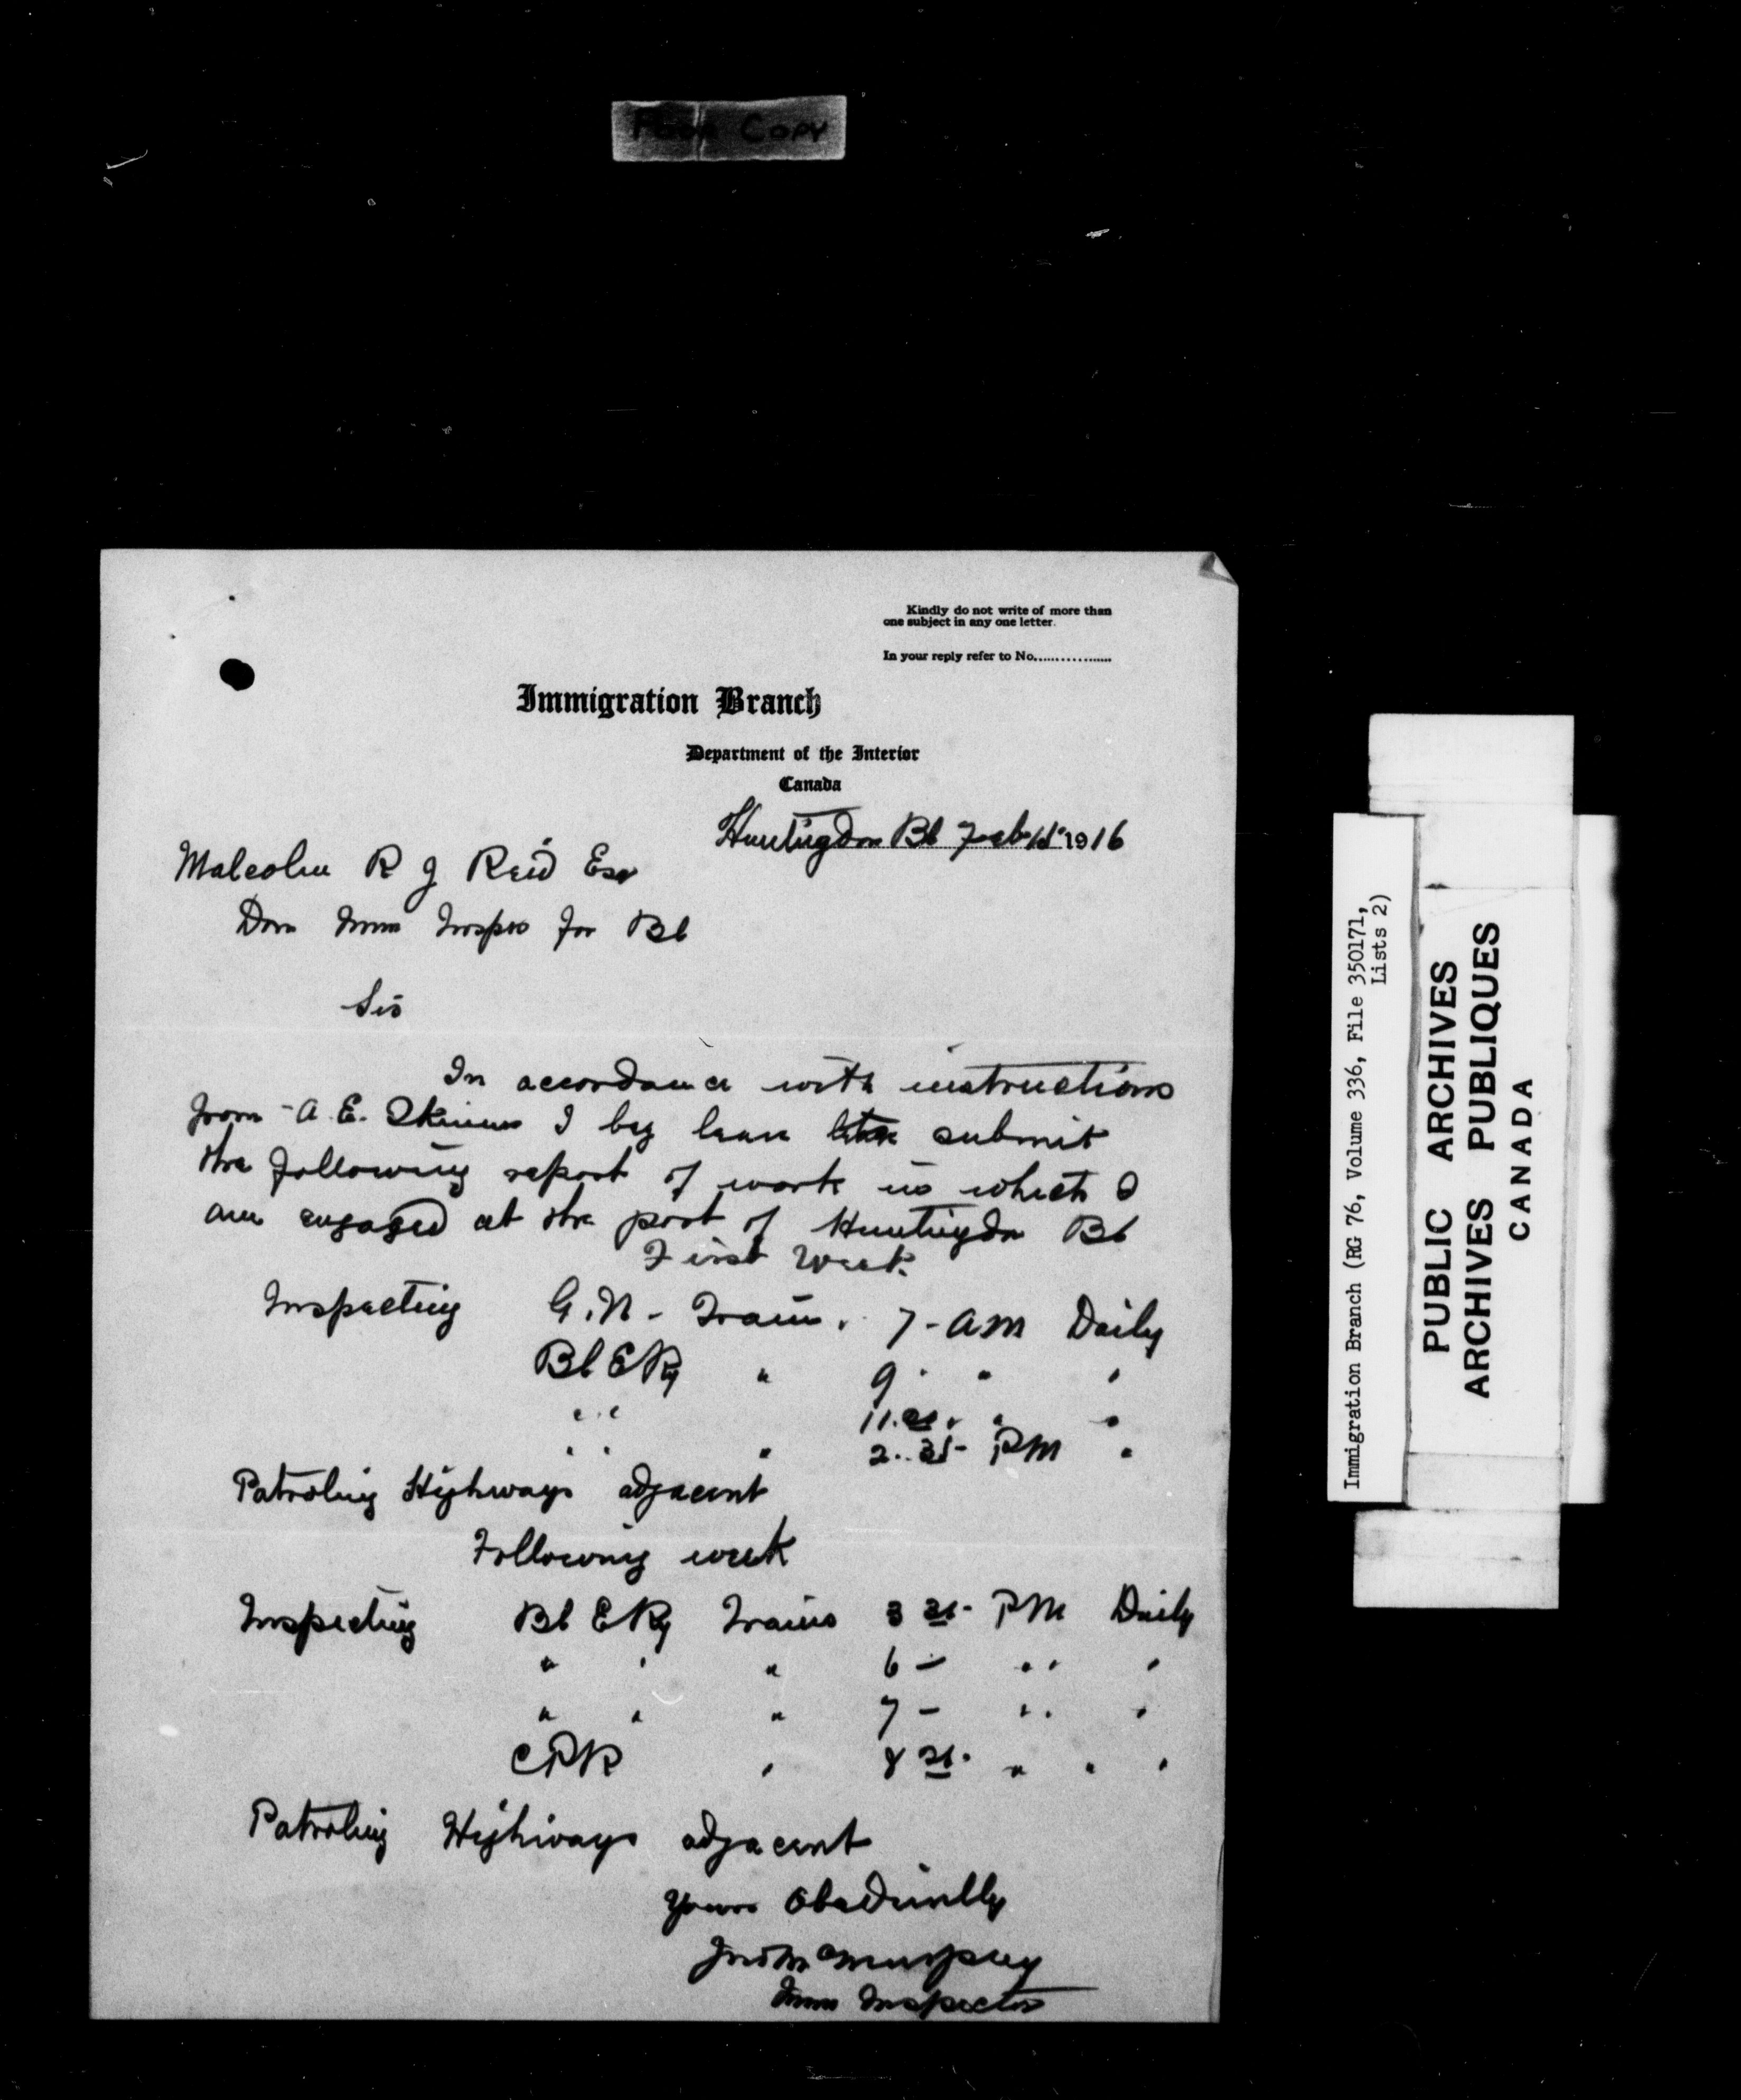 Poor Copy
Kindly do not write of more than
one subject in any one letter.
In your reply refer to No..................
Immigration Branch
Department of the Interior
Canada
Huntingdon BC Feb 1916
Malcolm R J Reid Esq
Dom Imm Inspec for BC
Sir
In accordance with instructions
from A. E. Skinner I beg leave submit
the following report of work in which I
am engaged at the port of Huntingdon BC
First Week
Inspecting G.N - Train. 7 - AM Daily
BC E Ry " 9 " "
" " 11. " "
" " " 2.35 - PM "
Patroling Highways adjacent
Following week
Inspecting BC E Ry Trains 3 PM Daily
" " " 6 - " " "
" " " 7 - " " "
CPR " 8 " " "
Patroling Highways adjacent
Yours Obediently
Murphy
Imm Inspector
Immigration Branch (RG 76, Volume 336, File 350171,
Lists 2)
PUBLIC ARCHIVES
ARCHIVES PUBLIQUES
CANADA